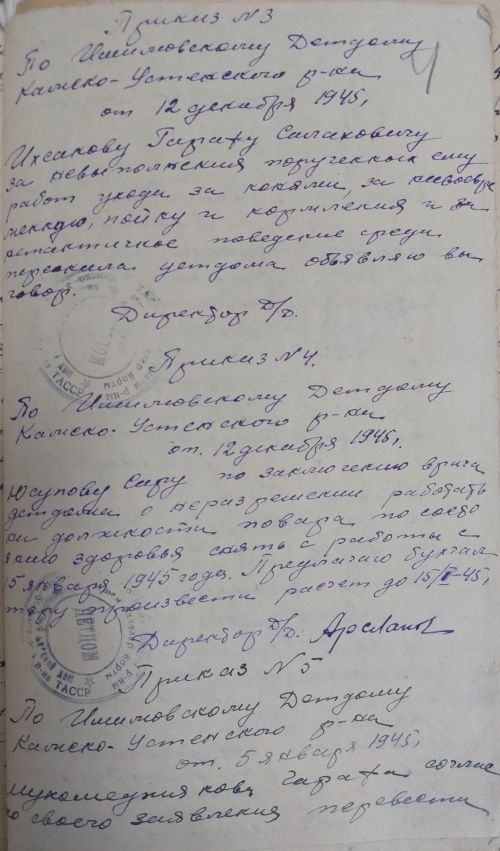 Приказ N 3
По Ишимовскому Детдому
Камско-Устенского р-на
от 12 декабря 1945,
4
Ихсанову Гарафу Салаховичу
за невыполнения порученных ему
работ ухода за конями, за несвоевре
менную, пойку и кормления и за
поведение среди
персонала детдома объявляю вы
говор.
Директор Д/д.
Приказ N 4.
По Ишимовскому Детдому
Камско-Устенского р-на
от. 12 декабря 1945,
Юсупову Сару по заключению врача
детдома о неразрешении работать
на должности повара по состо
янию здоровья снять с работы с
15 января 1945 года. Предлагаю бухгал
теру произвести расчет до 15/I-45,
Директор Д/д. Арсланов
ДЕТДОМ
ТАССР
Приказ N 5
По Ишимовскому Детдому
Камско-Устенского р-на
от. 5 января 1945,
Гарафа соглас
но своего заявления перевести